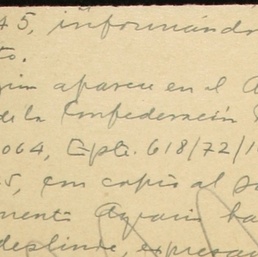 45, informándo
to.
aparece en el A
de la Confederación
064, Epte. 618/72/1
5, con copia al
Agrario ha
deslinde, expresa